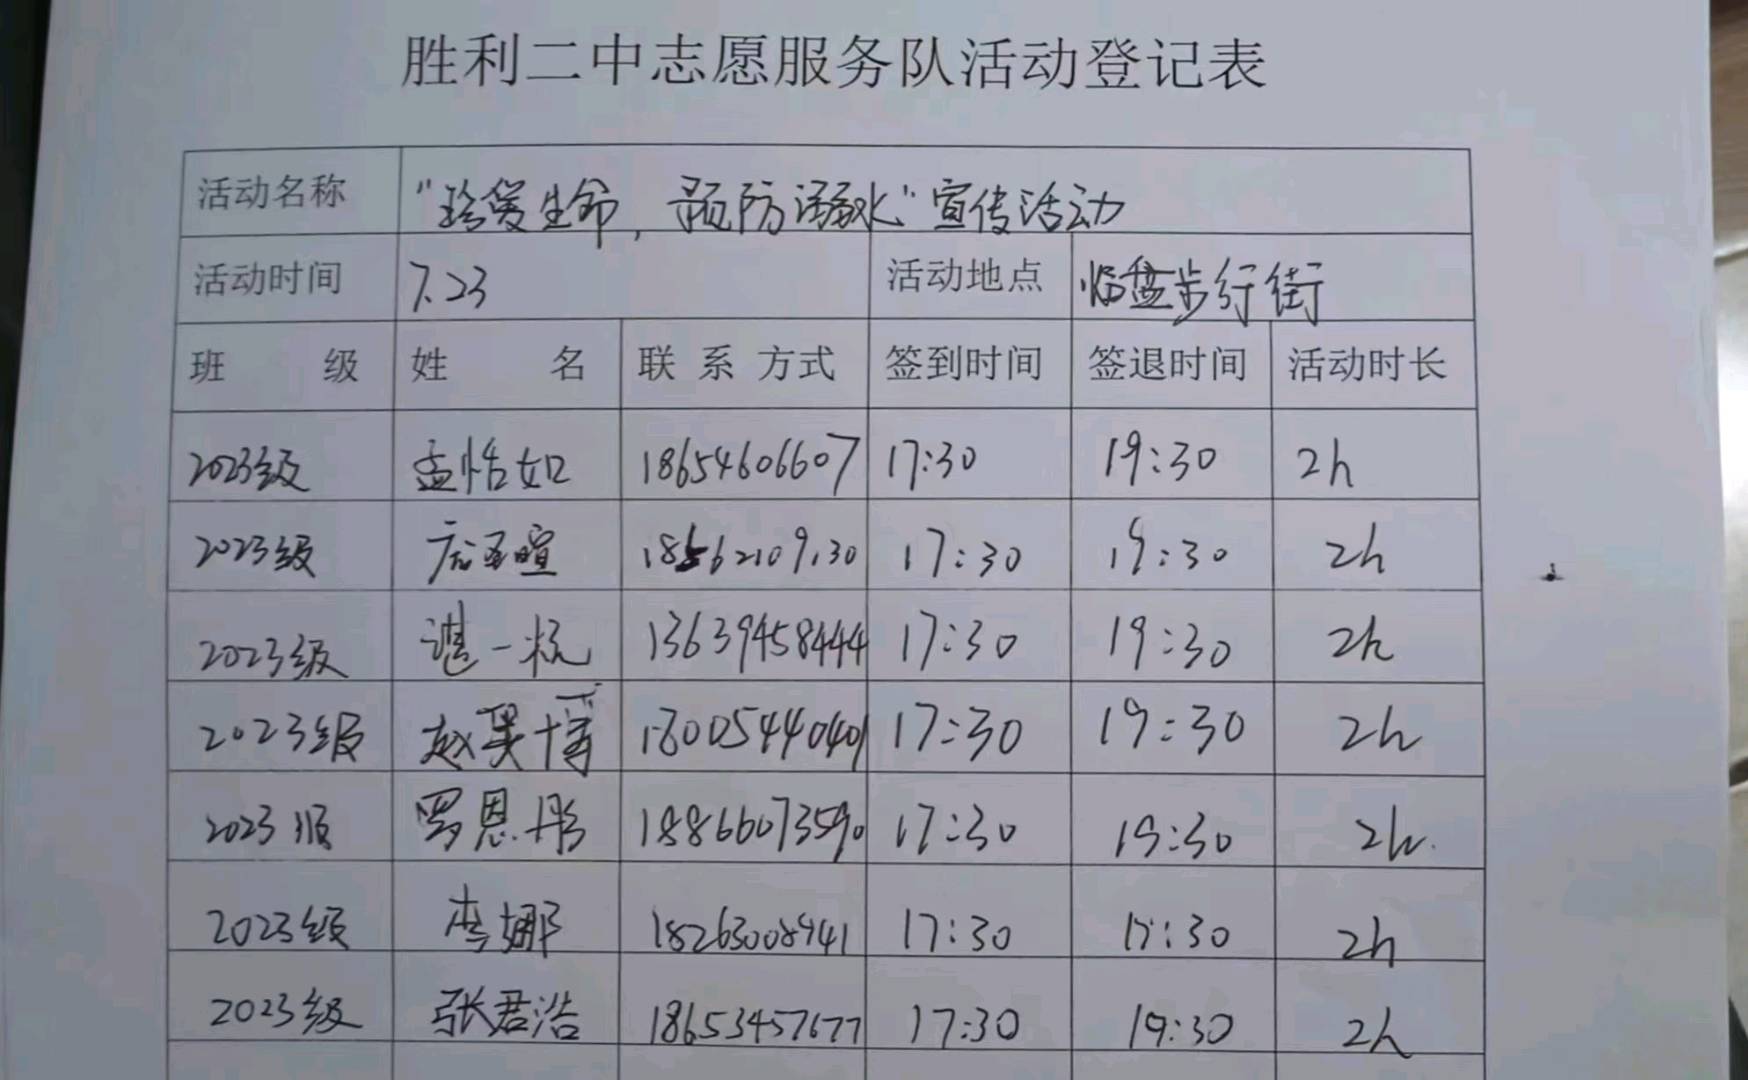 胜利二中志愿服务队活动登记表
活动名称 "珍爱生命，预防溺水"宣传活动
活动时间 7.23 活动地点 临盘步行街
班 级 姓 名 联系方式 签到时间 签退时间 活动时长
2023级 孟恬如 18654606607 17:30 19:30 2h
2023级 17:30 19:30 2h
2023级 谌一杭 13639458444 17:30 19:30 2h
2023级 赵 18005440401 17:30 19:30 2h
2023级 罗恩彤 18866073590 17:30 19:30 2h
2023级 李娜 18263008941 17:30 19:30 2h
2023级 张君浩 18653457677 17:30 19:30 2h